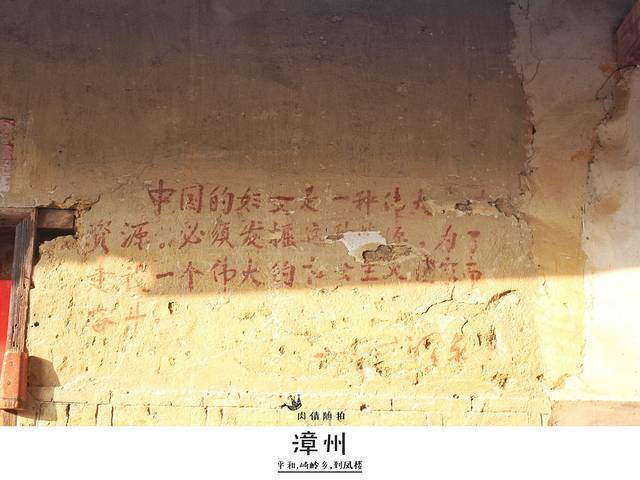 中国的妇女是一种伟大
资源。必须发掘这种 源,为了
建设一个伟大的 会主义国家而
奋斗。
肉倩随拍
漳州
平和,崎岭乡,到凤楼